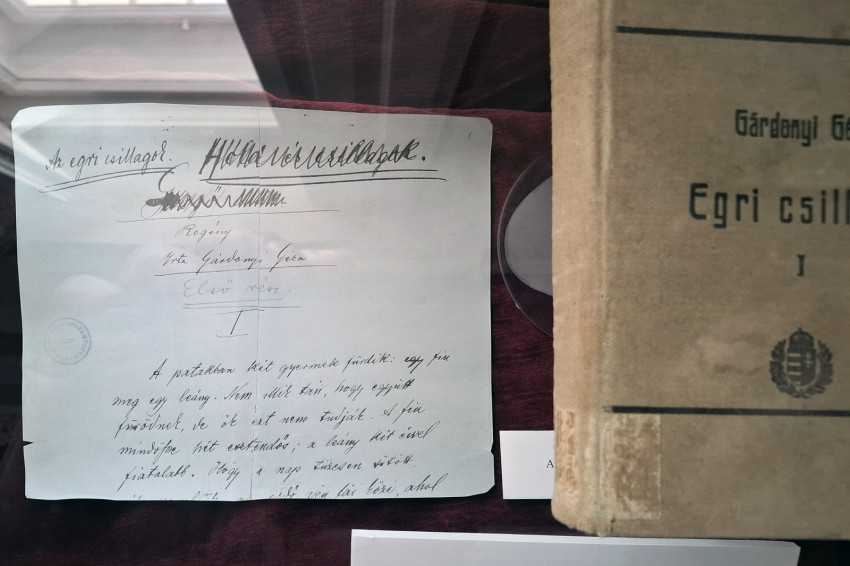 Az egri csillagok.
Regény
Irta Gárdonyi Géza
Első rész.
I
A patakban két gyermek fürdik: egy fiu
meg egy leány. Nem illik tán, hogy együtt
fürödnek, de ők ezt nem tudják. A fiu
mindössze hét esztendős; a leány két évvel
fiatalabb.
a nap tüzesen sütött.
ahol
Gárdonyi Gé
Egri csill
I
A